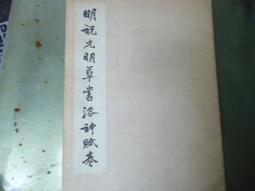 明祝允明草書洛神賦卷